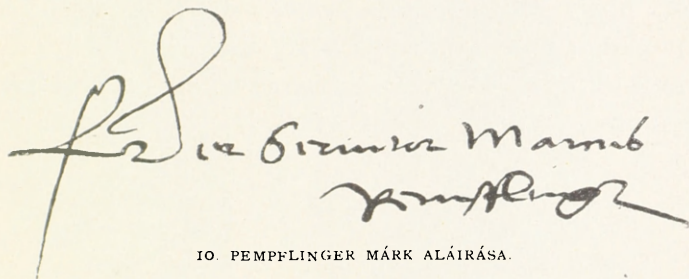 Servitor Marcus
Pempflinger
10. PEMPFLINGER MÁRK ALÁIRÁSA.